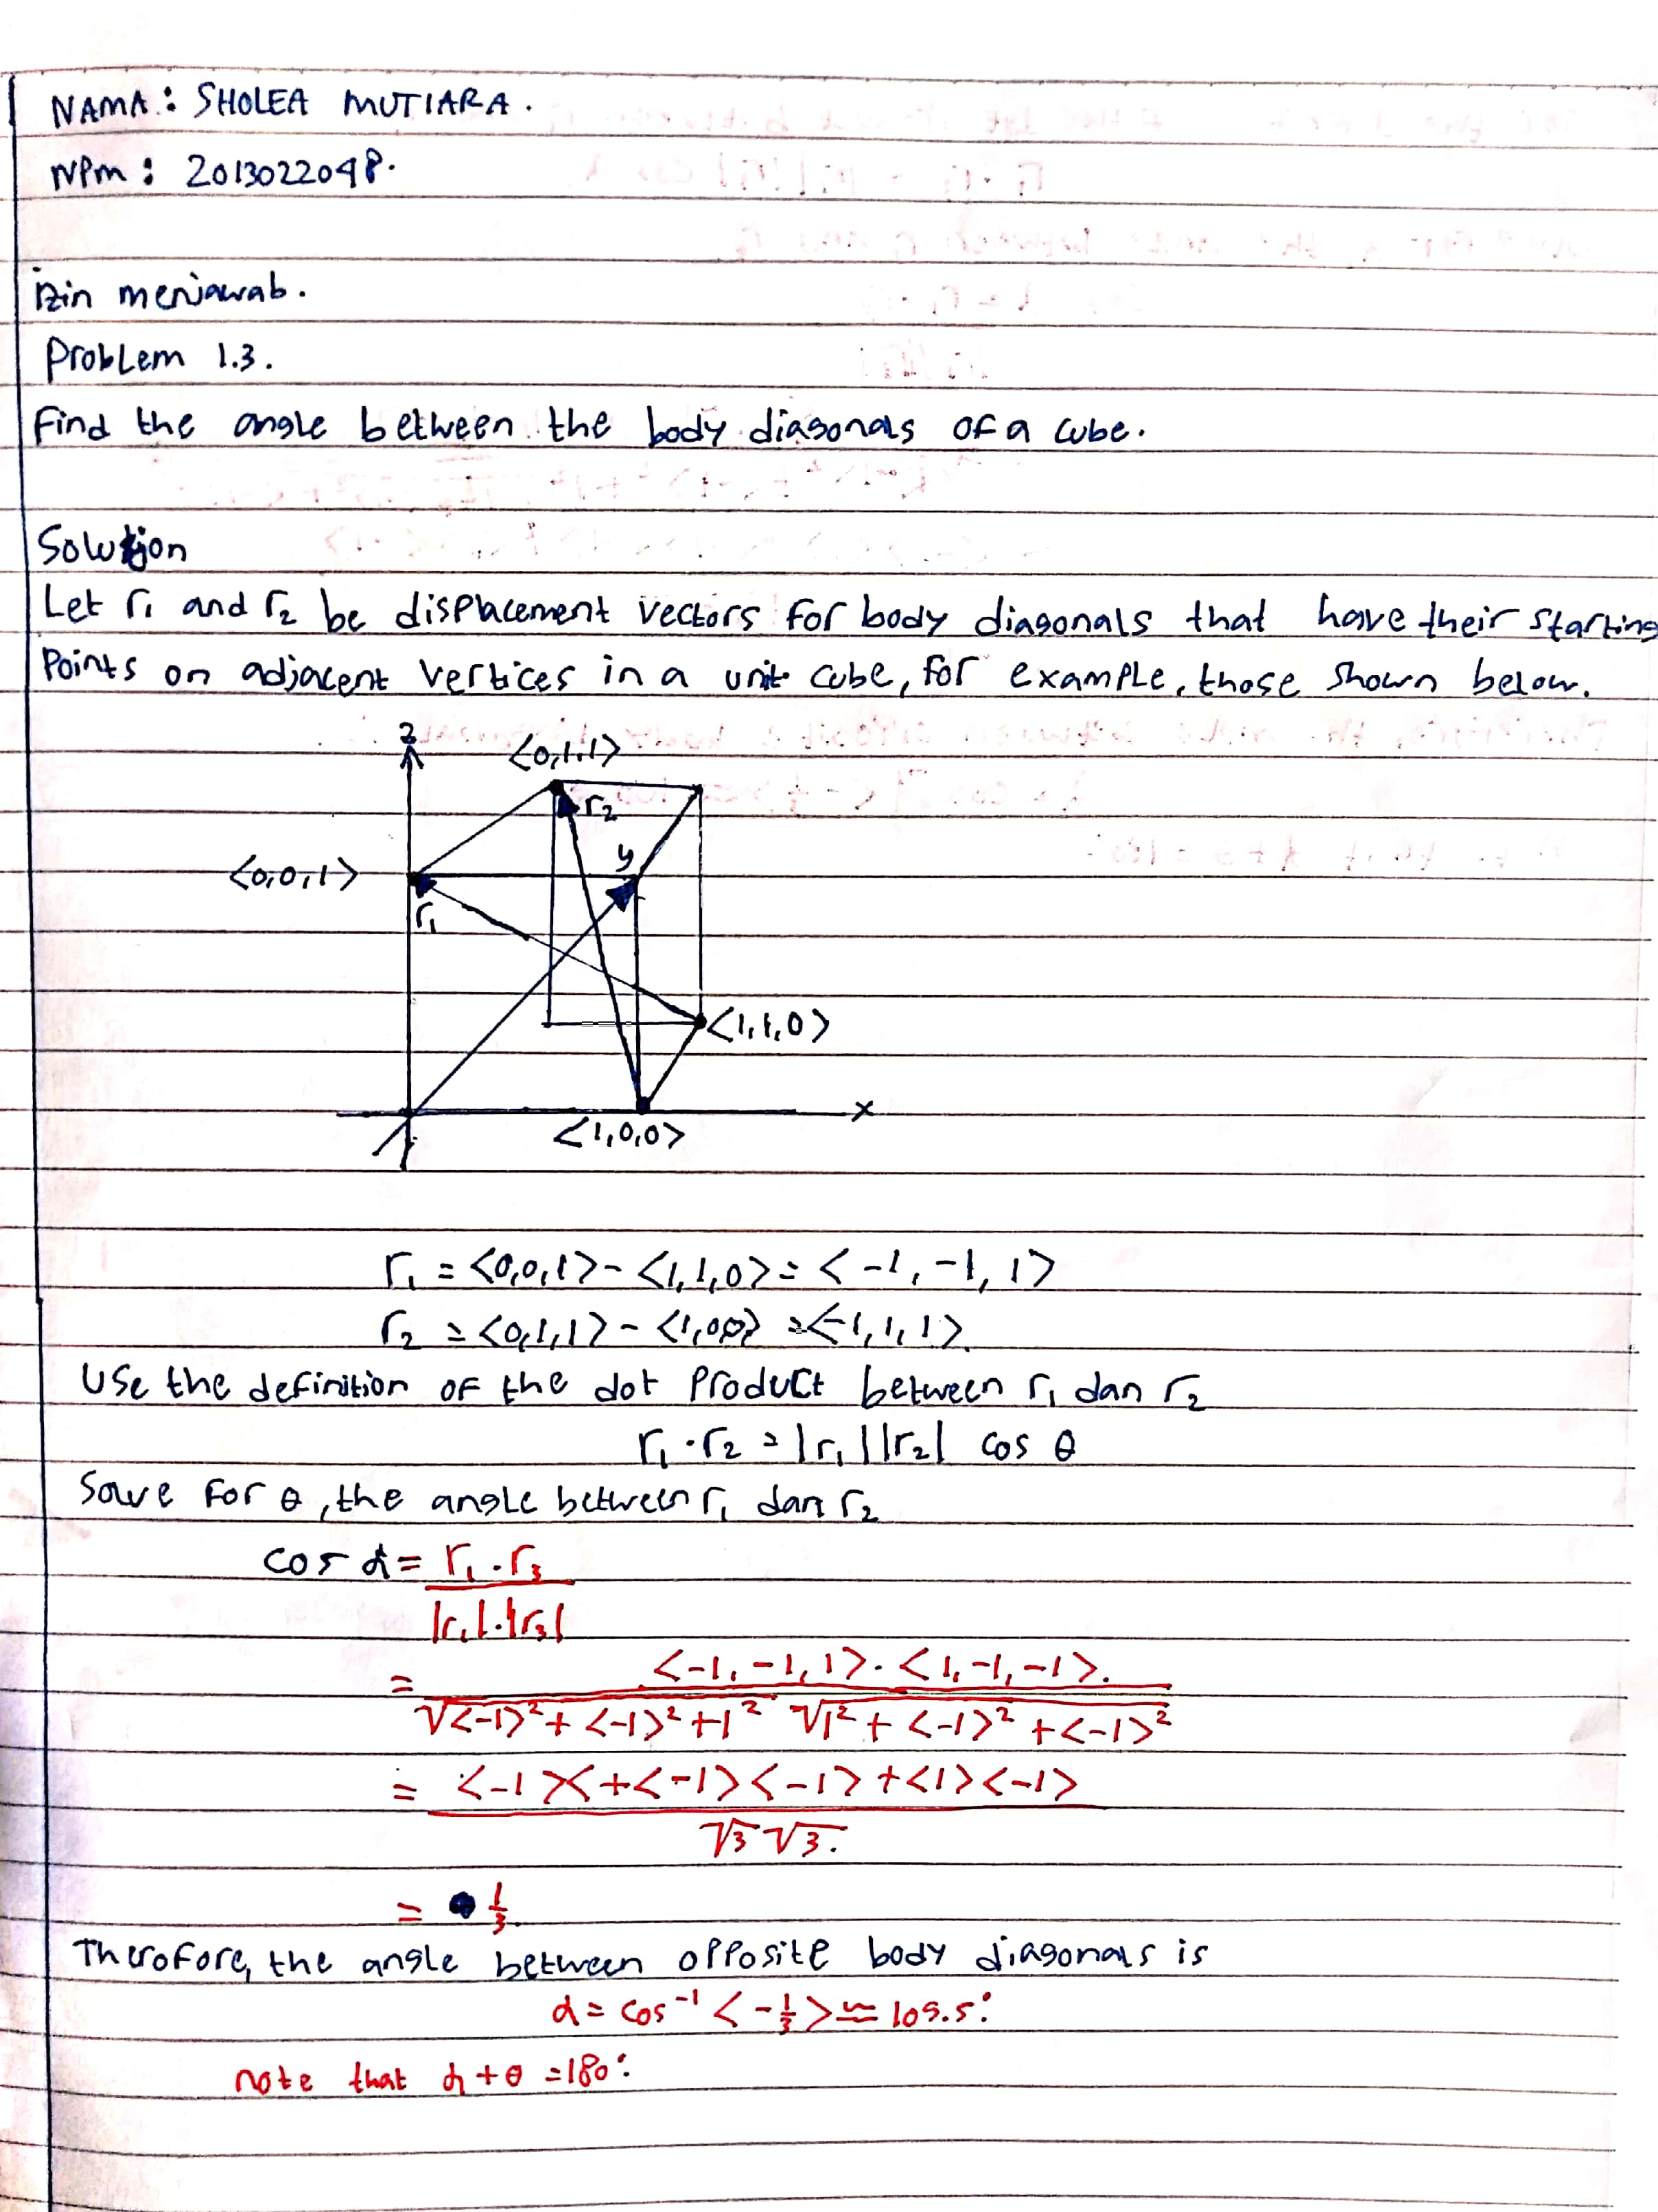 NAMA : SHOLEA MUTIARA.
NPM : 2013022048.
Izin menjawab.
Problem 1.3.
Find the angle between the body diagonals of a cube.
Solution
Let r₁ and r₂ be displacement vectors for body diagonals that have their starting
Points on adjacent vertices in a unit cube, for example, those shown below.
z
<0,1,1>
r₂
y
<0,0,1>
r₁
<1,1,0>
x
<1,0,0>
r₁ = <0,0,1> - <1,1,0> = <-1,-1,1>
r₂ = <0,1,1> - <1,0,0> = <-1,1,1>
Use the definition of the dot Product between r₁ dan r₂
r₁ · r₂ = |r₁||r₂| cos θ
Solve for θ, the angle between r₁ dan r₂
cos α = r₁ · r₃
|r₁|·|r₃|
= <-1,-1,1> · <1,-1,-1>.
√<-1>² + <-1>² + 1² √1² + <-1>² + <-1>²
= <-1>< + <-1><-1> + <1><-1>
√3 √3.
= 1/3.
Therofore, the angle between opposite body diagonals is
α = cos⁻¹ <-1/3> ≈ 109.5°
note that α + θ = 180°